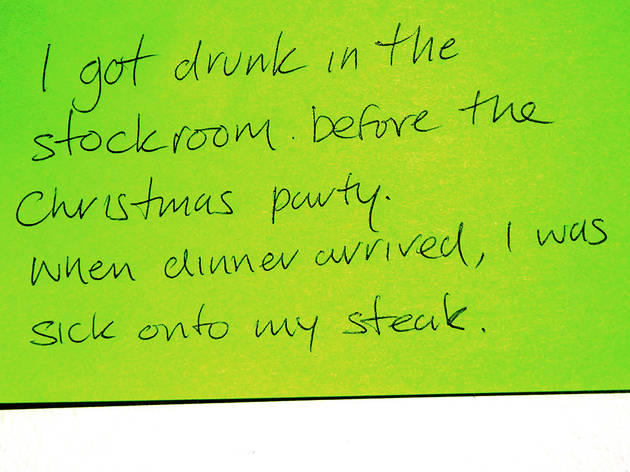 I got drunk in the
stockroom. before the
Christmas party.
When dinner arrived, I was
sick onto my steak.